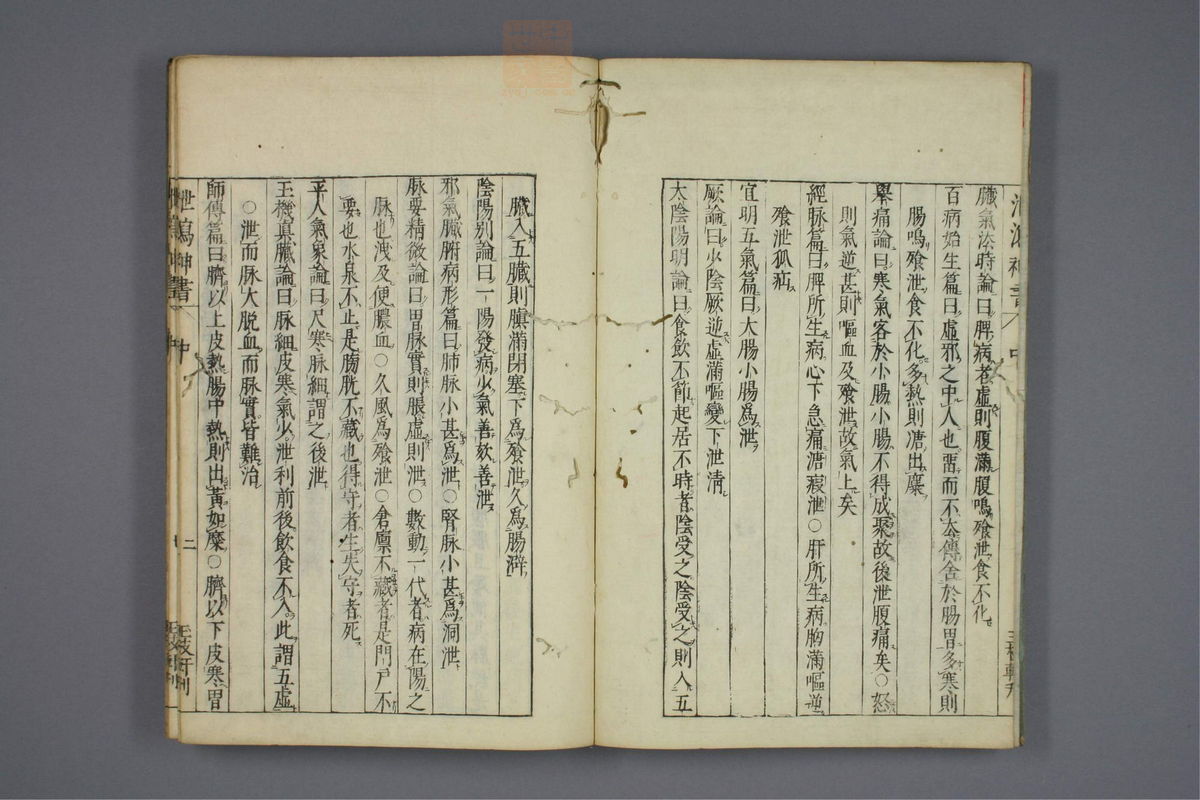 臟氣法時論曰脾病者虛則腹滿腹鳴飧泄食不化
百病始生篇曰虛邪之中人也畱而不去傳舍於腸胃多寒則
腸鳴飧泄食不化多熱則溏出糜
舉痛論曰寒氣客於小腸小腸不得成聚故後泄腹痛矣○怒
則氣逆甚則嘔血及飧泄故氣上矣
經脉篇曰脾所生病心下急痛溏瘕泄○肝所生病胸滿嘔逆
飧泄狐疝
宣明五氣篇曰大腸小腸爲泄
厥論曰少陰厥逆虛滿嘔變下泄淸
太陰陽明論曰食飲不節起居不時者陰受之陰受之則入五
臟入五臟則䐜滿閉塞下爲飧泄久爲腸澼
陰陽别論曰一陽發病少氣善欬善泄
邪氣臟腑病形篇曰肺脉小甚爲泄○腎脉小甚爲洞泄
脉要精微論曰胃脉實則脹虛則泄○數動一代者病在陽之
脉也洩及便膿血○久風爲飧泄○倉廩不藏者是門戶不
要也水泉不止是膀胱不藏也得守者生失守者死
平人氣象論曰尺寒脉細謂之後泄
玉機眞臟論曰脉細皮寒氣少泄利前後飲食不入此謂五虛
○泄而脉大脫血而脉實皆難治
師傳篇曰臍以上皮熱腸中熱則出黃如糜○臍以下皮寒胃
泄瀉神書 中 二